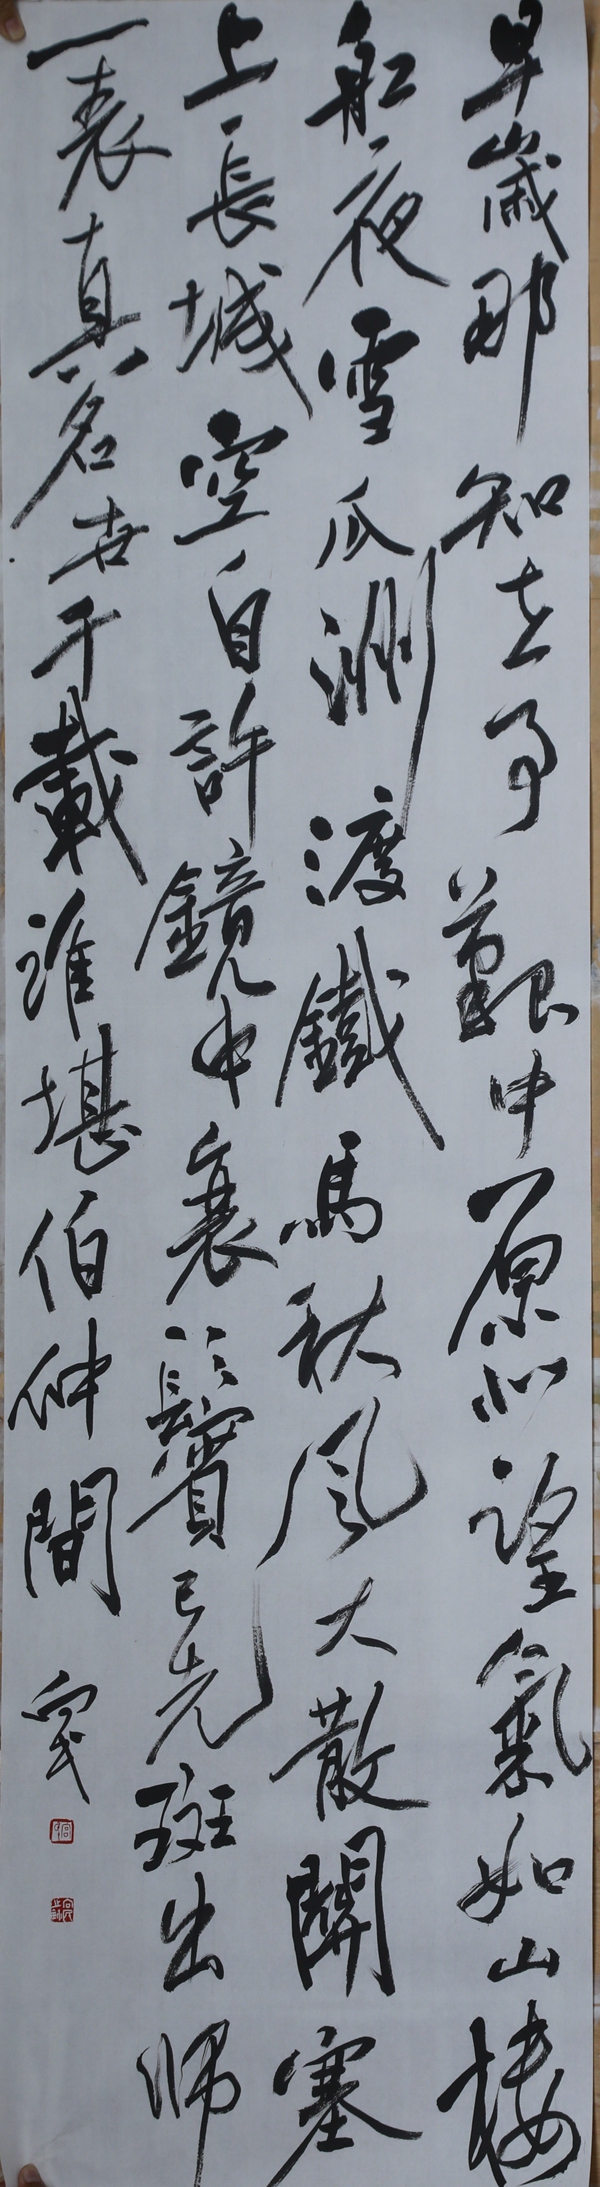 早歲那知世事艱中原北望氣如山樓
船夜雪瓜洲渡鐵馬秋風大散關塞
上長城空自許鏡中衰鬢已先斑出師
一表真名世千載誰堪伯仲間